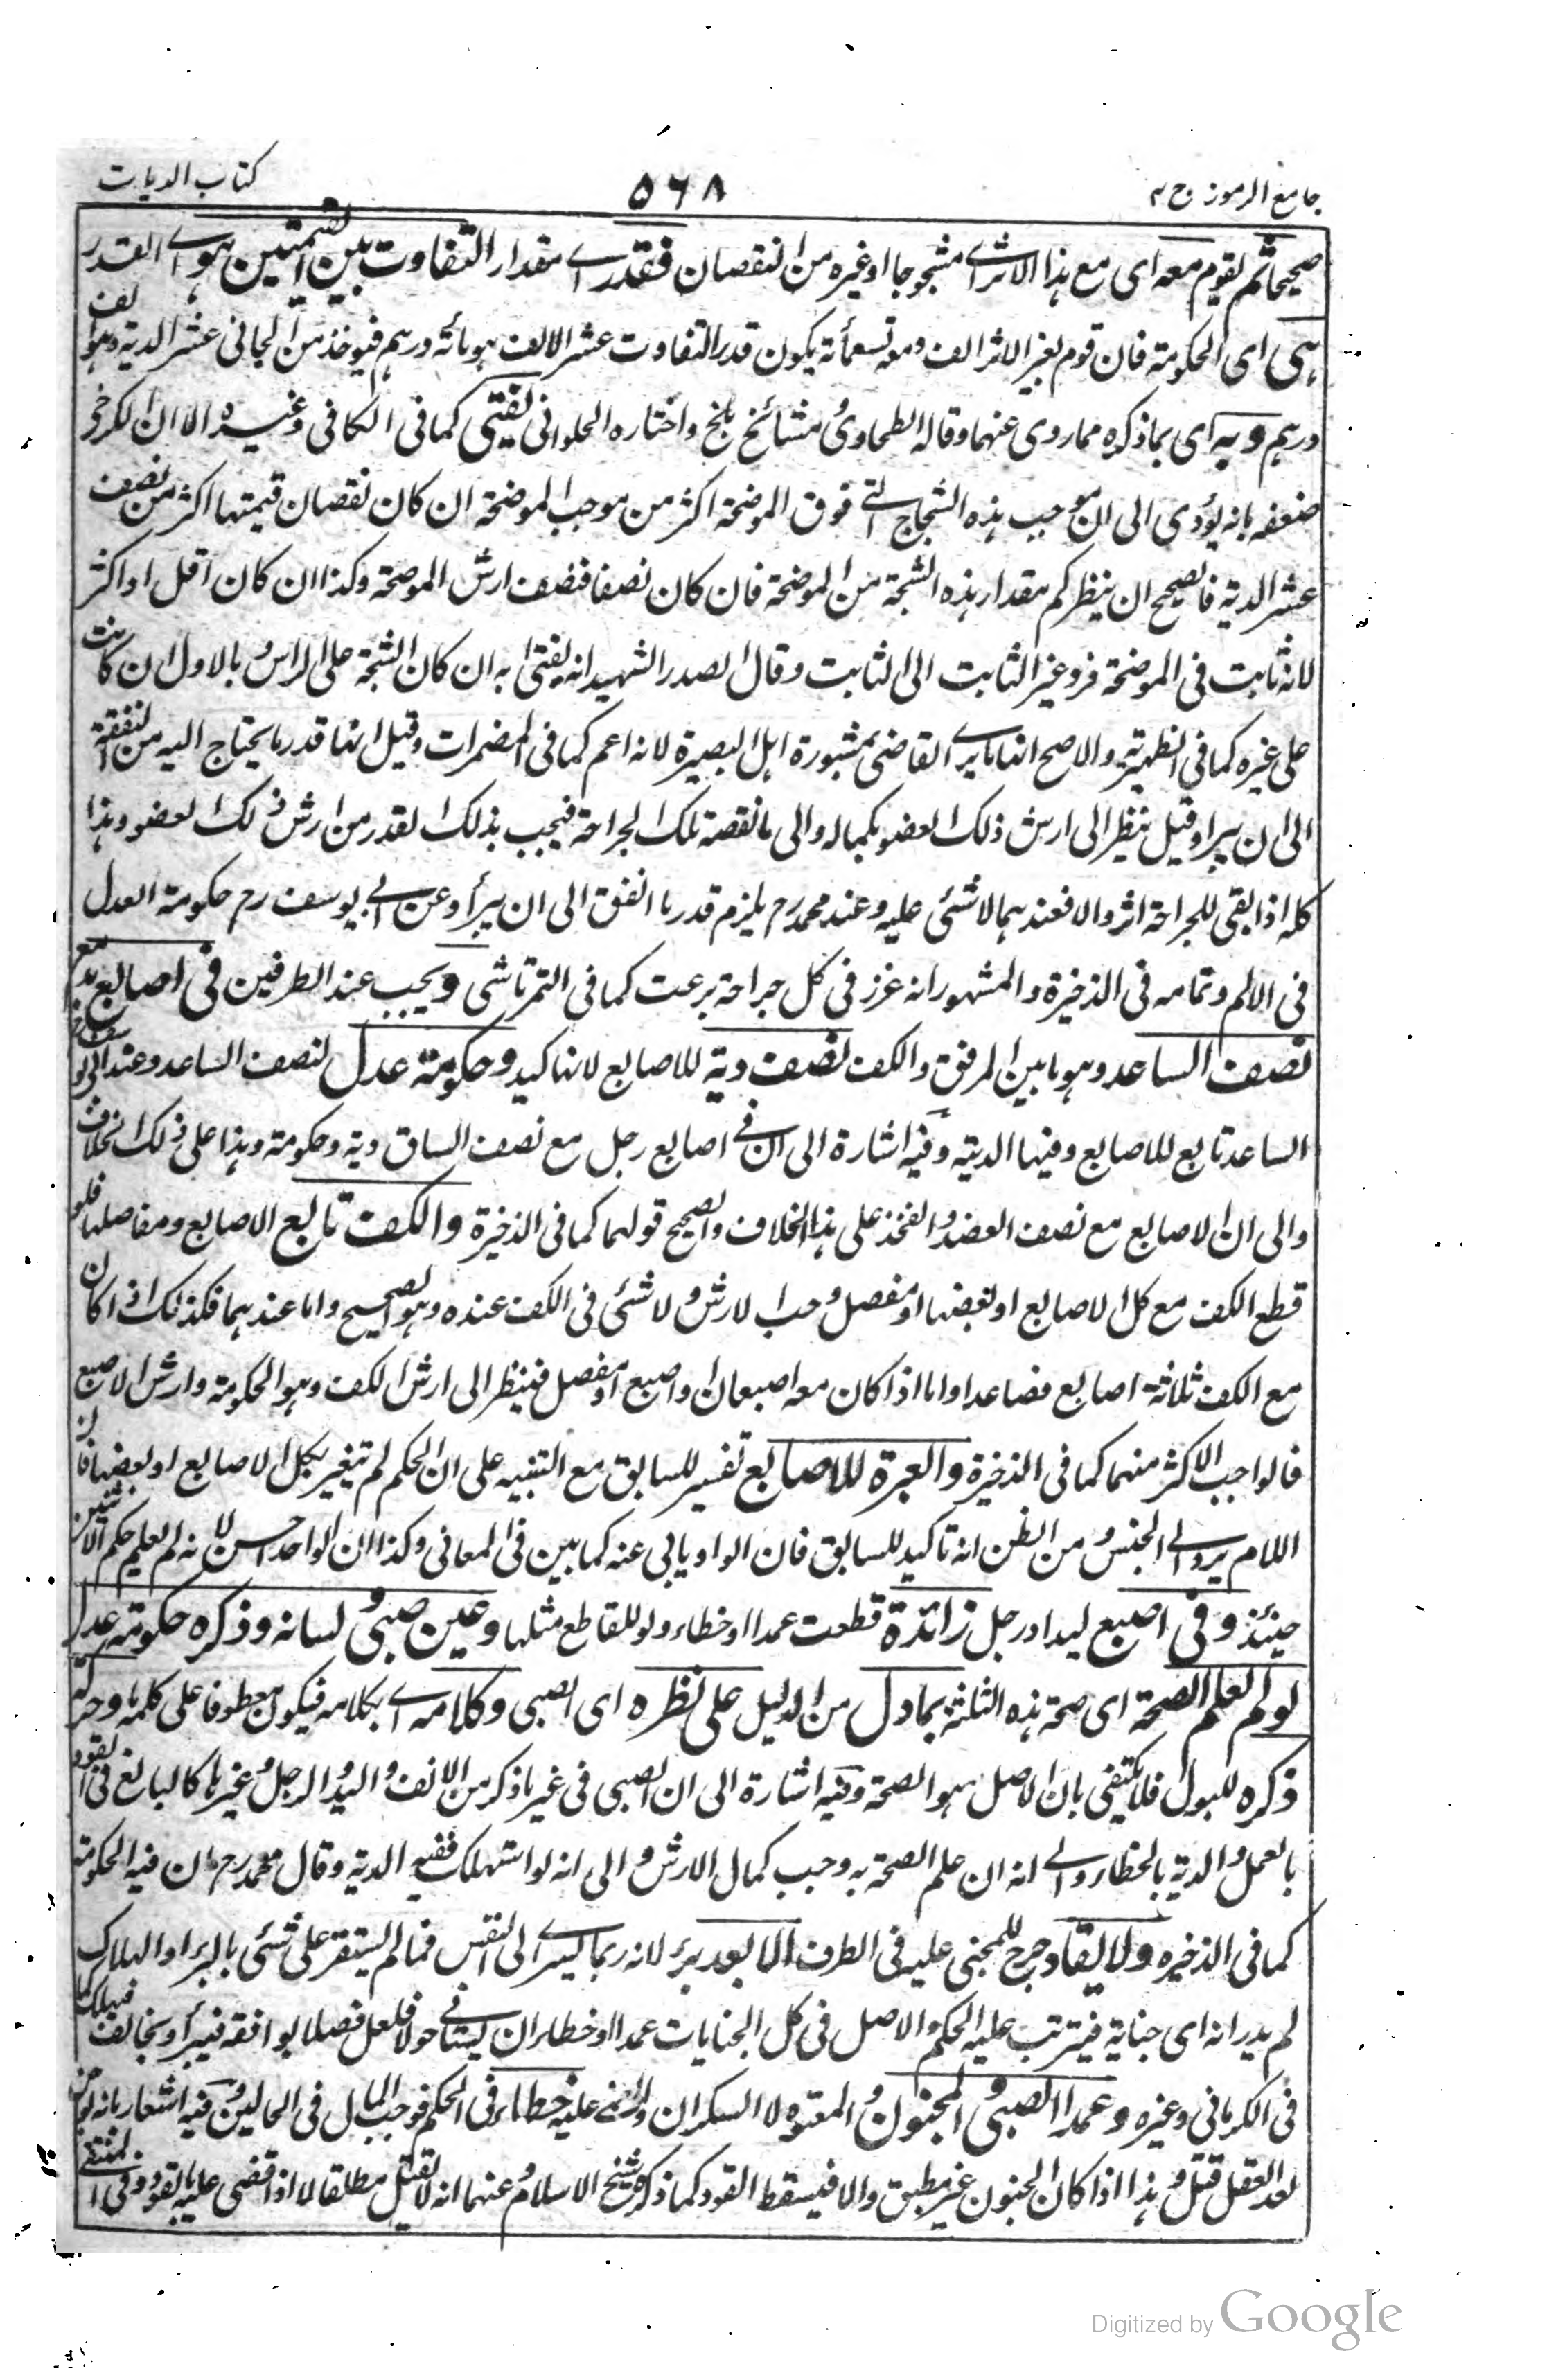 جامع الرموز ج ٢
٥٦٨
كتاب الديات
صحيحا ثم يقوم معه اى مع هذا الاثر اى مشجوجا او غيره من النقصان فقدر اى مقدار التفاوت بين القيمتين هو اى القدر
هى اى الحكومة فان قوم بغير الاثر الف ومعه تسعمأئة يكون قدر التفاوت عشر الالف هو مائة درهم فيوخذ من الجانى عشر الدية وهو الف
درهم وبه اى بما ذكره مما روى عنهما وقاله الطحاوى ومشائخ بلخ واختاره الحلوانى يفتى كما فى الكافى وغيره الا ان الكرخى
ضعفه بانه يؤدى الى ان موجب هذه الشجاج التى فوق الموضحة اكثر من موجب الموضحة ان كان نقصان قيمتها اكثر من نصف
عشر الدية فالصحيح ان ينظر كم مقدار هذه الشجة من الموضحة فان كان نصفا فنصف ارش الموضحة وكذا ان كان اقل او اكثر
لانه ثابت فى الموضحة فرد غير الثابت الى الثابت وقال الصدر الشهيد انه يفتى به ان كان الشجة على الراس وبالاول ان كانت
على غيره كما فى الظهيرية والاصح انها ما يرى القاضى بمشورة اهل البصيرة لانه اعم كما فى المضمرات وقيل انها قدر ما يحتاج اليه من النفقة
الى ان يبرا وقيل ينظر الى ارش ذلك العضو بكماله والى ما نقصته تلك الجراحة فيجب بذلك القدر من ارش ذلك العضو وهذا
كله اذا بقى للجراحة اثر والا فعندهما لا شئى عليه وعند محمد رح يلزم قدر ما انفق الى ان يبرأ وعن ابى يوسف رح حكومة العدل
فى الالم وتمامه فى الذخيرة والمشهور انه عزر فى كل جراحة برءت كما فى التمرتاشى ويجب عند الطرفين فى اصابع يد مع
نصف الساعد وهو ما بين المرفق والكف نصف دية للاصابع لانها كيد وحكومة عدل لنصف الساعد وعند ابى يوسف رح
الساعد تابع للاصابع وفيها الدية وفيه اشارة الى ان فى اصابع رجل مع نصف الساق دية وحكومة وهذا على ذلك الخلاف
والى ان الاصابع مع نصف العضد والفخذ على هذا الخلاف والصحيح قولهما كما فى الذخيرة والكف تابع الاصابع ومفاصلها فلو
قطع الكف مع كل الاصابع او بعضها او مفصل وجب الارش ولا شئى فى الكف عنده وهو الصحيح واما عندهما فكذلك اذا كان
مع الكف ثلاثة اصابع فصاعدا واما اذا كان معه اصبعان او اصبع او مفصل فينظر الى ارش الكف وهو الحكومة وارش الاصبع
فالواجب الاكثر منهما كما فى الذخيرة والعبرة للاصابع تفسير للسابق مع التنبيه على ان الحكم لم يتغير بكل الاصابع او بعضها فان
اللام يرد الى الجنس ومن الظن انه تاكيد للسابق فان الواو يابى عنه كما بين فى المعانى وكذا ان الواحد احسن لانه لم يعلم حكم الاثنين
حينئذ وفى اصبع ليد او رجل زائدة قطعت عمدا او خطاء ولو للقاطع مثلها وعين صبى ولسانه وذكره حكومة عدل
لو لم يعلم الصحة اى صحة هذه الثلثة بما دل من الدليل على نظره اى الصبى وكلامه اى بكلامه فيكون معطوفا على كلمة ما وحركة
ذكره للبول فلا يكتفى بان الاصل هو الصحة وفيه اشارة الى ان الصبى فى غير ما ذكر من الانف واليد والرجل وغيرها كالبالغ فى القود
بالعمد والدية بالخطاء والى انه ان علم الصحة به وجب كمال الارش والى انه لو استهلك ففيه الدية وقال محمد رح ان فيه الحكومة
كما فى الذخيره ولا يقاد جرح للمجنى عليه فى الطرف الا بعد برء لانه ربما يسرى الى النفس فما لم يستقر على شئى بالبرء او الهلاك
لم يدر انه اى جناية فيترتب عليه الحكم والاصل فى كل الجنايات عمدا او خطاء ان يستانى حولا فلعل فصلا يوافقه فيبرأ ويخالف فيهلك كما
فى الكرمانى وغيره وعمد الصبى والمجنون والمعتوه لا السكران والمغمى عليه خطاء فى الحكم فوجب المال فى الحالين وفيه اشعار بانه لو جن
بعد العقل قتل وهذا اذا كان الجنون غير مطبق والا فيسقط القود كما ذكره شيخ الاسلام وعنهما انه لا يقتل مطلقا الا اذا قضى عليه بالقود وفى المنتقى
Digitized by Google